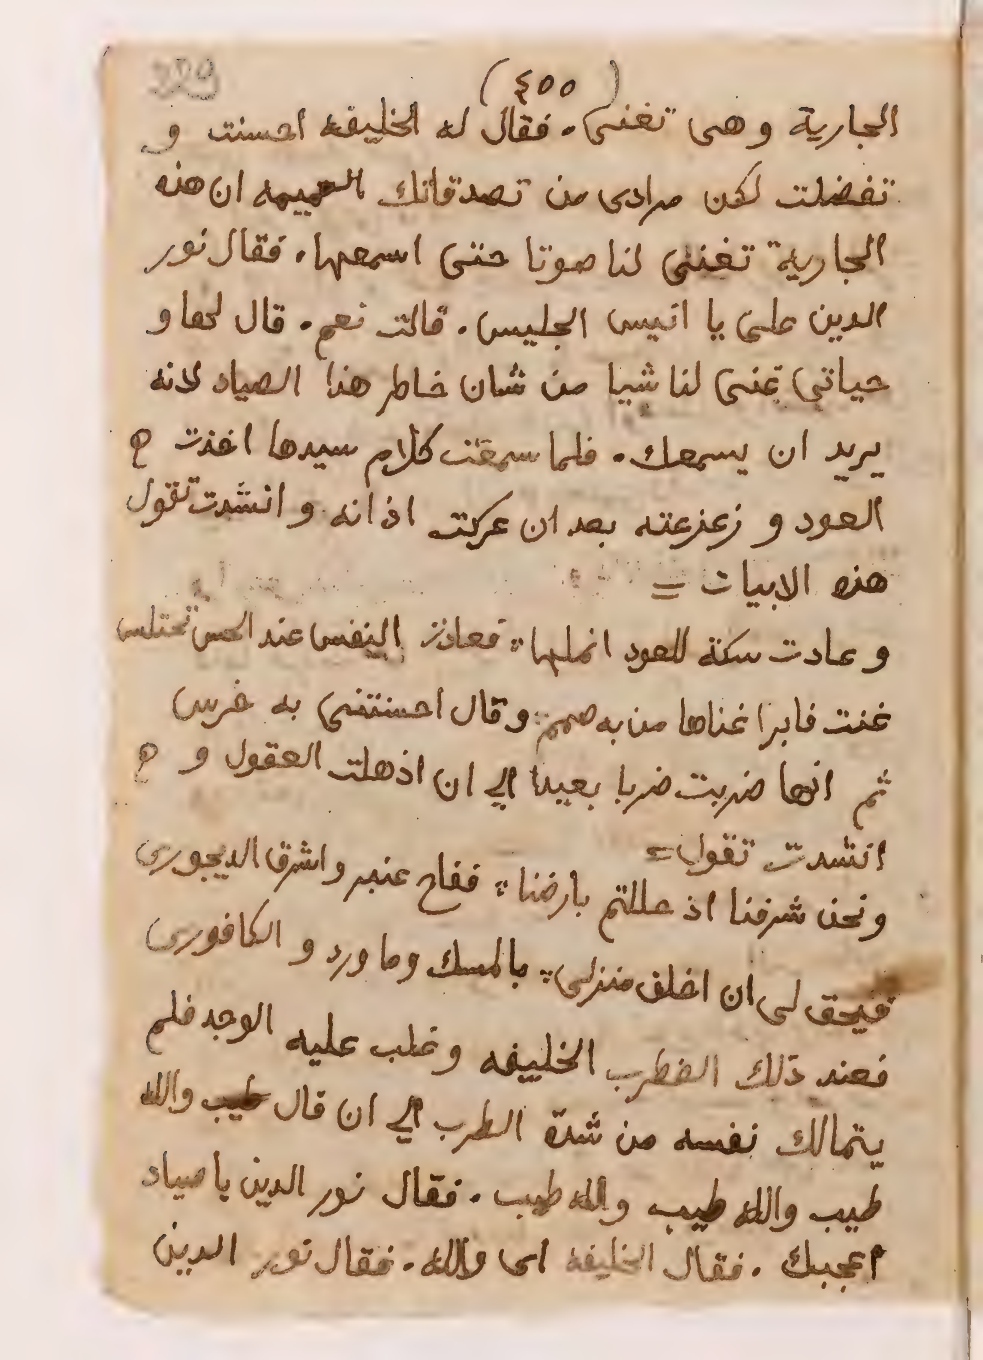 229
(٤٥٥)
الجارية وهى تغنى. فقال له الخليفه احسنت و
تفضلت لكن مرادى من تصدقاتك العميمه ان هذه
الجارية تغنى لنا صوتا حتى اسمعها. فقال نور
الدين على يا انيس الجليس. قالت نعم. قال لها و
حياتي غنى لنا شيا من شان خاطر هذا الصياد لانه
يريد ان يسمعك. فلما سمعت كلام سيدها اخذت
العود و زعزعته بعد ان عركت اذانه وانشدت تقول
هذه الابيات =
وعادت سكتة للعود انملها فعادت النفس عند الحس تختلس
غنت فابرا غناها من به صمم وقال احسنتنى به خرس
ثم انها ضربت ضربا بعيدا الي ان اذهلت العقول و
انشدت تقول =
ونحن شرفنا اذ حللتم بارضنا ففاح عنبر واشرق الديجورى
فيحق لى ان اخلق منزلى بالمسك وما ورد و الكافورى
فعند ذلك اضطرب الخليفه وغلب عليه الوجد فلم
يتمالك نفسه من شدة الطرب الي ان قال طيب والله
طيب والله طيب والله طيب. فقال نور الدين يا صياد
اعجبك. فقال الخليفه اى والله. فقال نور الدين